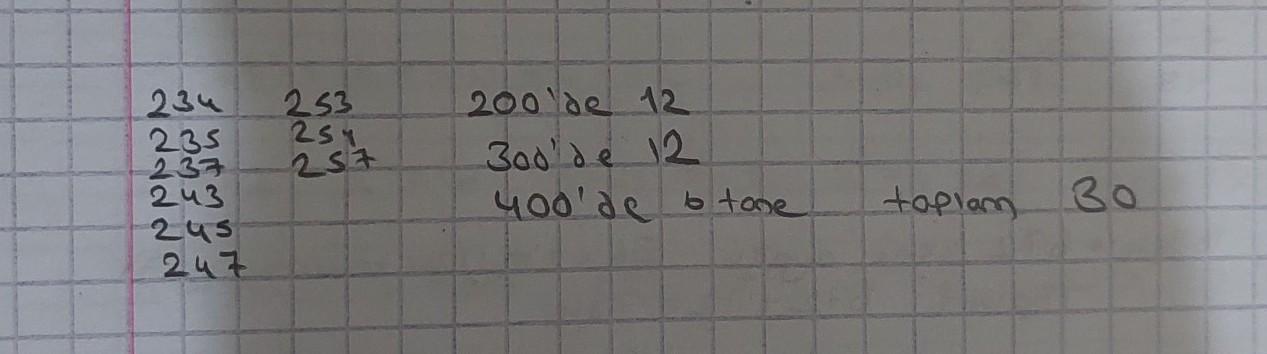 234 253 200'de 12
235 254
237 257 300'de 12
243 400'de 6 tane toplam 30
245
247